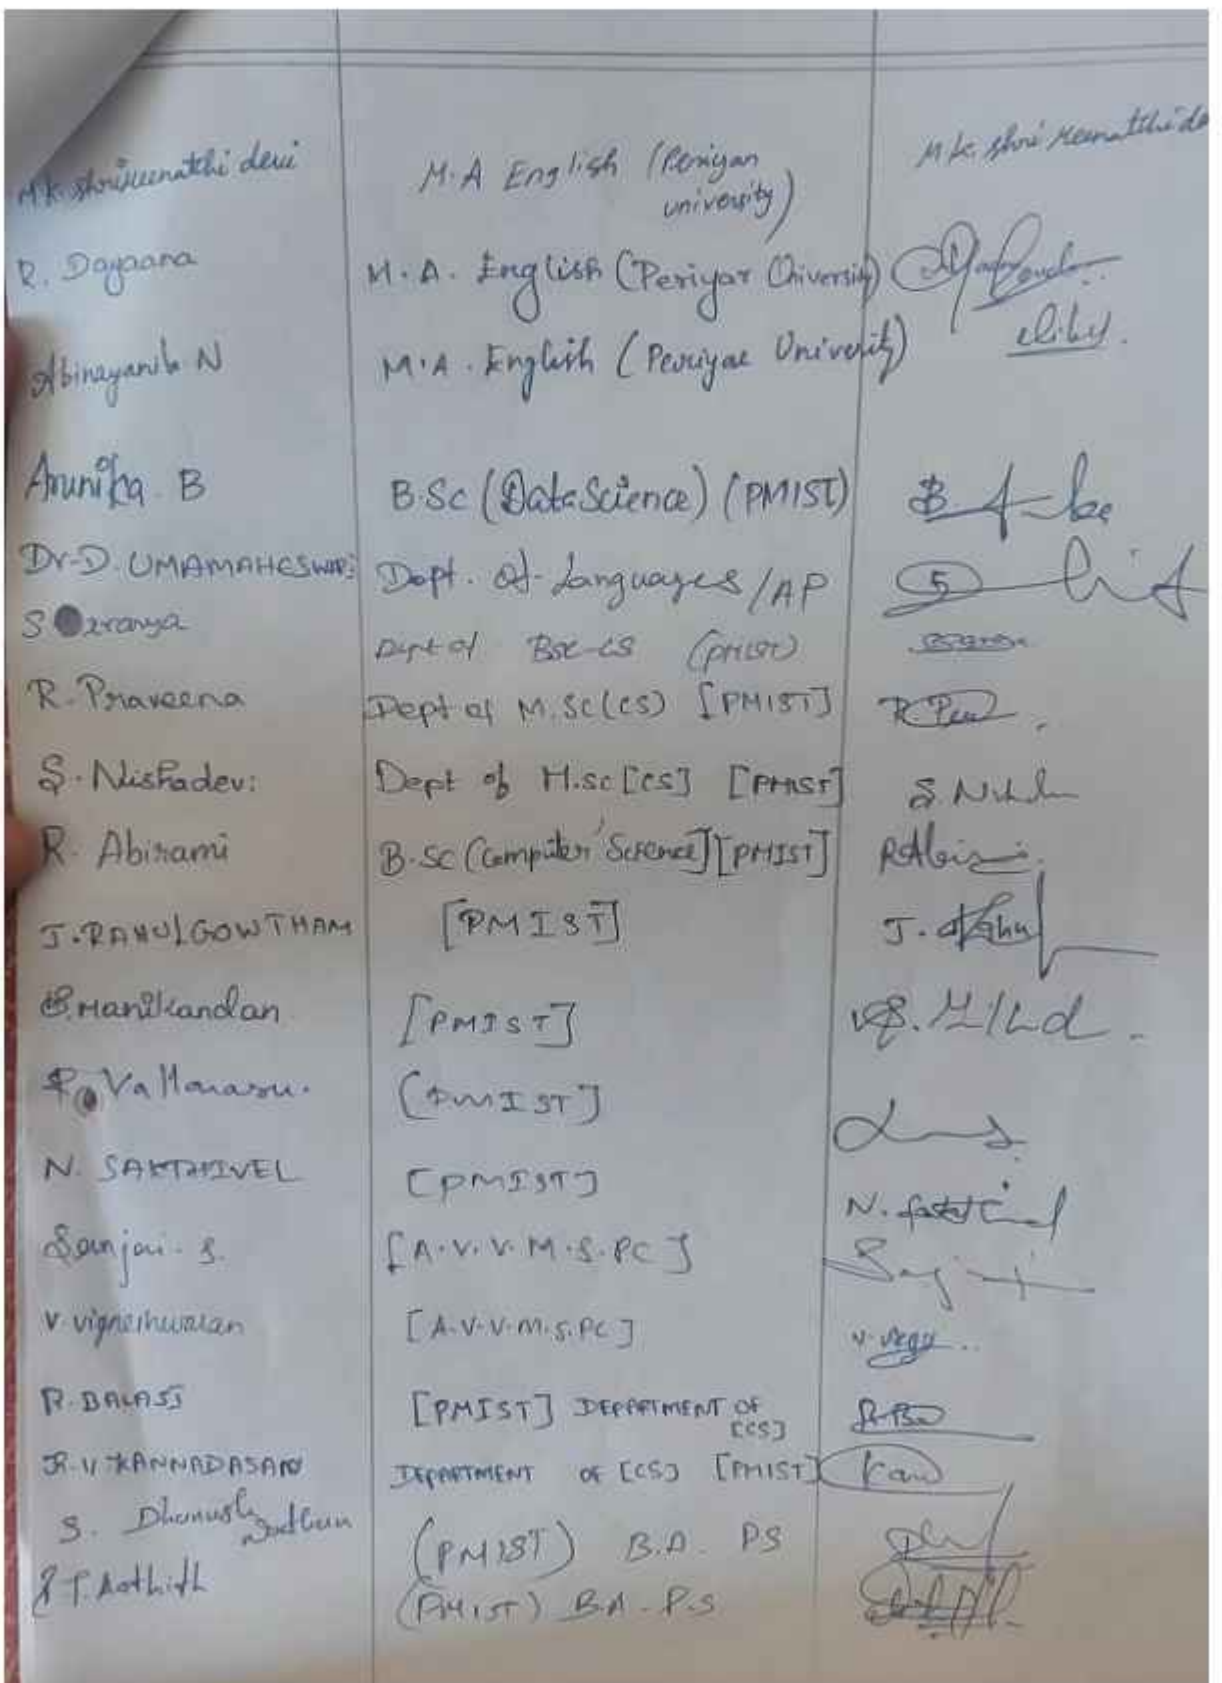 M.K. shrimeenatchi devi M.A English (Periyan M.K. shri meenatchi de
university)
R. Dayaana M.A. English (Periyar University)
Abinayanila N M.A. English (Periyar University)
Arunika B B.Sc (Data Science) (PMIST) B
Dr. D. UMAMAHESWARI Dept. of Languages /AP
S Dept of BSC-CS (PMIST)
R. Praveena Dept of M.Sc(CS) [PMIST] R
S. Nishadevi Dept of M.sc [CS] [PMIST] S.
R. Abirami B.Sc (Computer Science] [PMIST] R Abi
J. RAHULGOWTHAM [PMIST] J. Rahul
S. Manikandan [PMIST]
Vallarasu. [PMIST]
N. SAKTHIVEL [PMIST] N.
Sanjai. S. [A.V.V.M.S.PC]
V. Vigneshwaran [A.V.V.M.S.PC] V.
R. BALAJI [PMIST] DEPARTMENT OF
[CS]
R.V KANNADASAN DEPARTMENT OF [CS] [PMIST] Kan
S. Dhanush (PMIST) B.A. PS
T. Aathith (PMIST) B.A. P.S